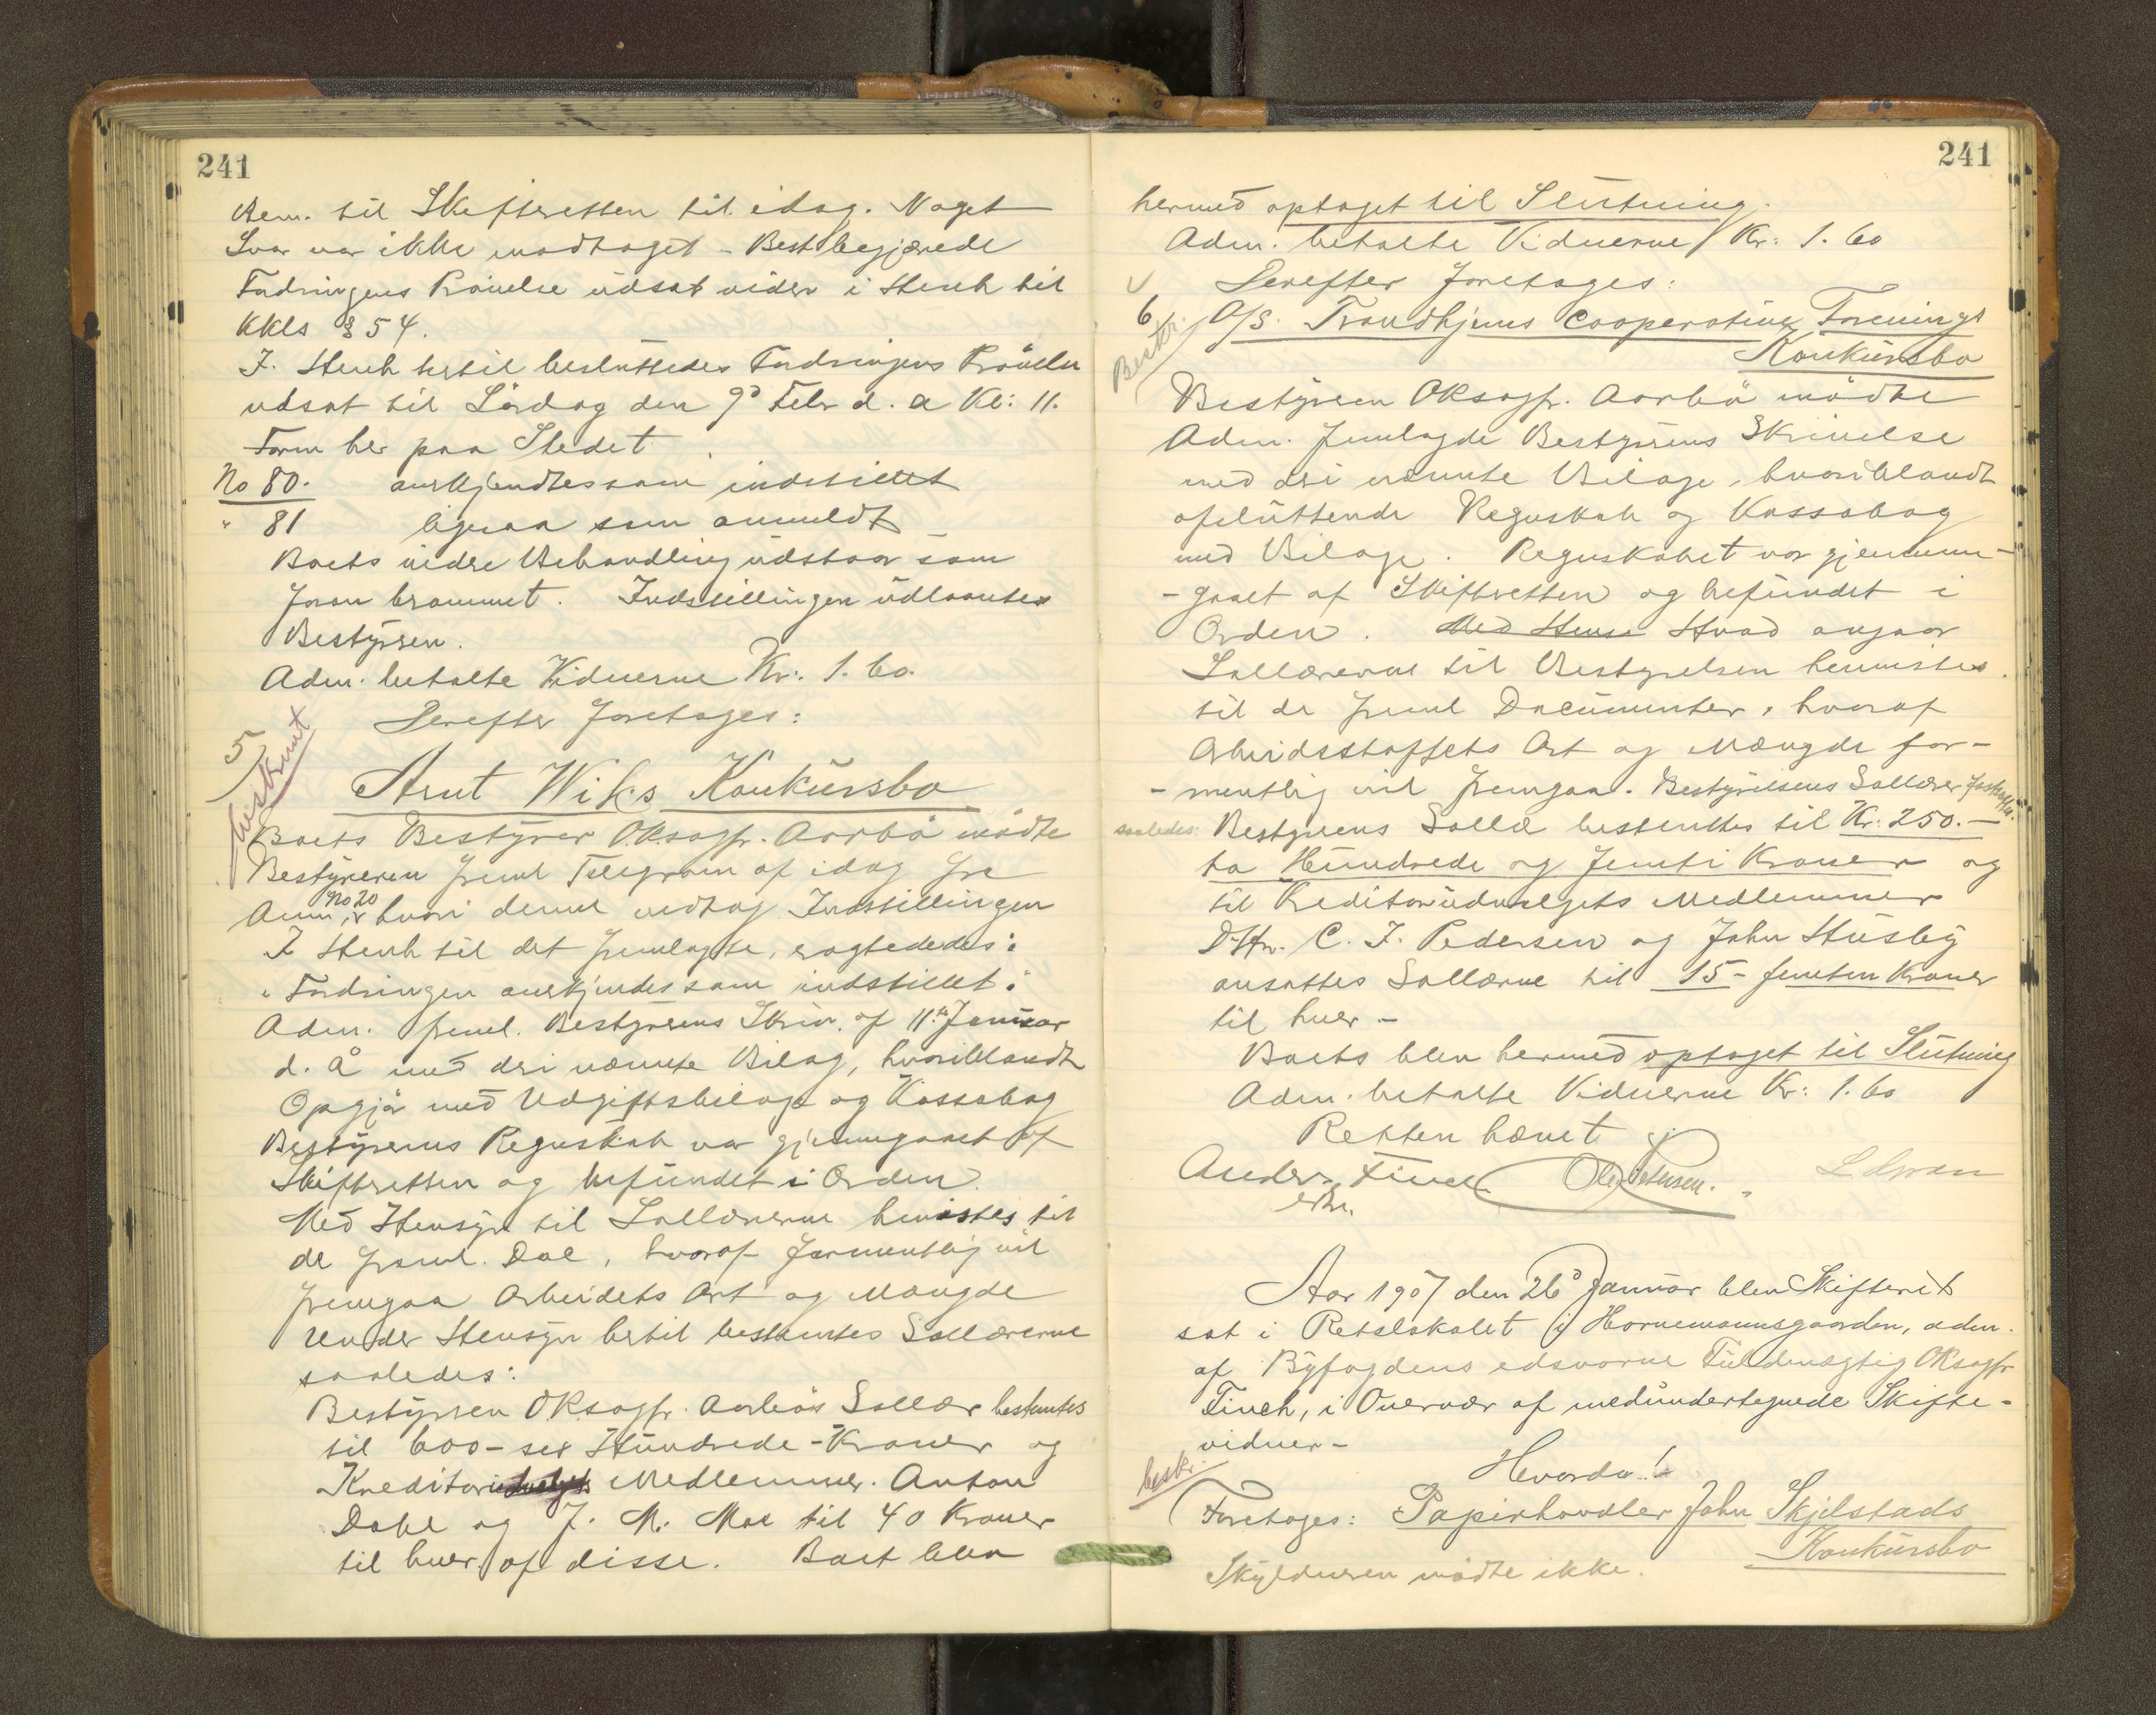 241
Bem. til Skifteretten til idag. Noget
Svar var ikke modtaget - Best. begjærede
Fordringens Prövelse udsat videre i Henh til
KKls § 54.
I. Henh hertil besluttedes Fordringens Prövelse
udsat til Lördag den 9d Febr d. a Kl: 11.
Form her paa Stedet.
No 80. anerkjendtes som indstillet
" 81 ligesaa som anmeldt
Boets videre Behandling udstaar som
foran berammet. Indstillingen udlaantes
Bestyreren.
Adm. betalte Vidnerne Kr: 1.60.
Derefter foretages:
5
beskrevet
Arnt Wiks Konkursbo
Boets Bestyrer O.R.sagfr. Aarbö mödte
Bestyreren freml Telegram af idag fra
Anm No 20, hvori denne vedtog Indstillingen
I Henh til det fremlagte, eragtededes:
"Fordringen anerkjendes som indstillet."
Adm. freml. Bestyrerens Skriv. af 11te Januar
d. Å med deri nævnte Bilag, hvoriblandt
Opgjör med Udgiftsbilage og Kassabog
Bestyrerens Regnskab var gjennemgaaet af
Skifteretten og befundet i Orden.
Med Hensyn til Sallærerne henvistes til
de freml. Dok, hvoraf formentlig vil
fremgaa Arbeidets Art og Mængde
Under Hensyn hertil bestemtes Sallærerne
saaledes:
Bestyreren O.R.sagfr. Aarbös Sallær bestemtes
til 600 - sex Hundrede - Kroner og
Kreditorudvalgets Medlemmer. Anton
Dahl og J. M. Moe til 40 Kroner
til hver af disse. Boet blev
241
hermed optaget til Slutning.
Adm. betalte Vidnerne Kr: 1.60
Derefter foretages:
6 A/S. Trondhjems Cooperative Forenings
Beskr.
Konkursbo
Bestyreren O.R.sagfr. Aarbö mödte
Adm. fremlagde Bestyrerens Skrivelse
med deri nævnte Bilage, hvoriblandt
afsluttende Regnskab og Kassabog
med Bilage. Regnskabet var gjennem-
-gaaet af Skifteretten og befundet i
Orden. Med Hensy Hvad angaar
Sallærerne til Bestyrelsen henvistes
til de freml Documenter, hvoraf
Arbeidsstoffets Art og Mængde for-
-mentlig vil fremgaa. Bestyrelsens Sallærer fastsattes
saaledes: Bestyrerens Sallæ bestemtes til Kr: 250.-
to Hundrede og femti Kroner og
til Kreditorudvalgets Medlemmer
D'Hrr. C. F. Pedersen og John Husby
ansattes Sallærne til 15 - femten Kroner
til hver -
Boets blev hermed optaget til Slutning
Adm. betalte Vidnerne Kr: 1.60
Retten hævet
Anders Finch Ole Petersen.
Aar 1907 den 26d Januar blev Skifteret
sat i Retslokalet i Hornemannsgaarden, adm.
af Byfogdens edsvorne Fuldmægtig O.R.sagfr
Finch, i Overvær af medundertegnede Skifte-
vidner -
Hvorda!
beskr.
Foretages: Papirhandler John Skjelstads
Konkursbo
Skyldneren mödte ikke.